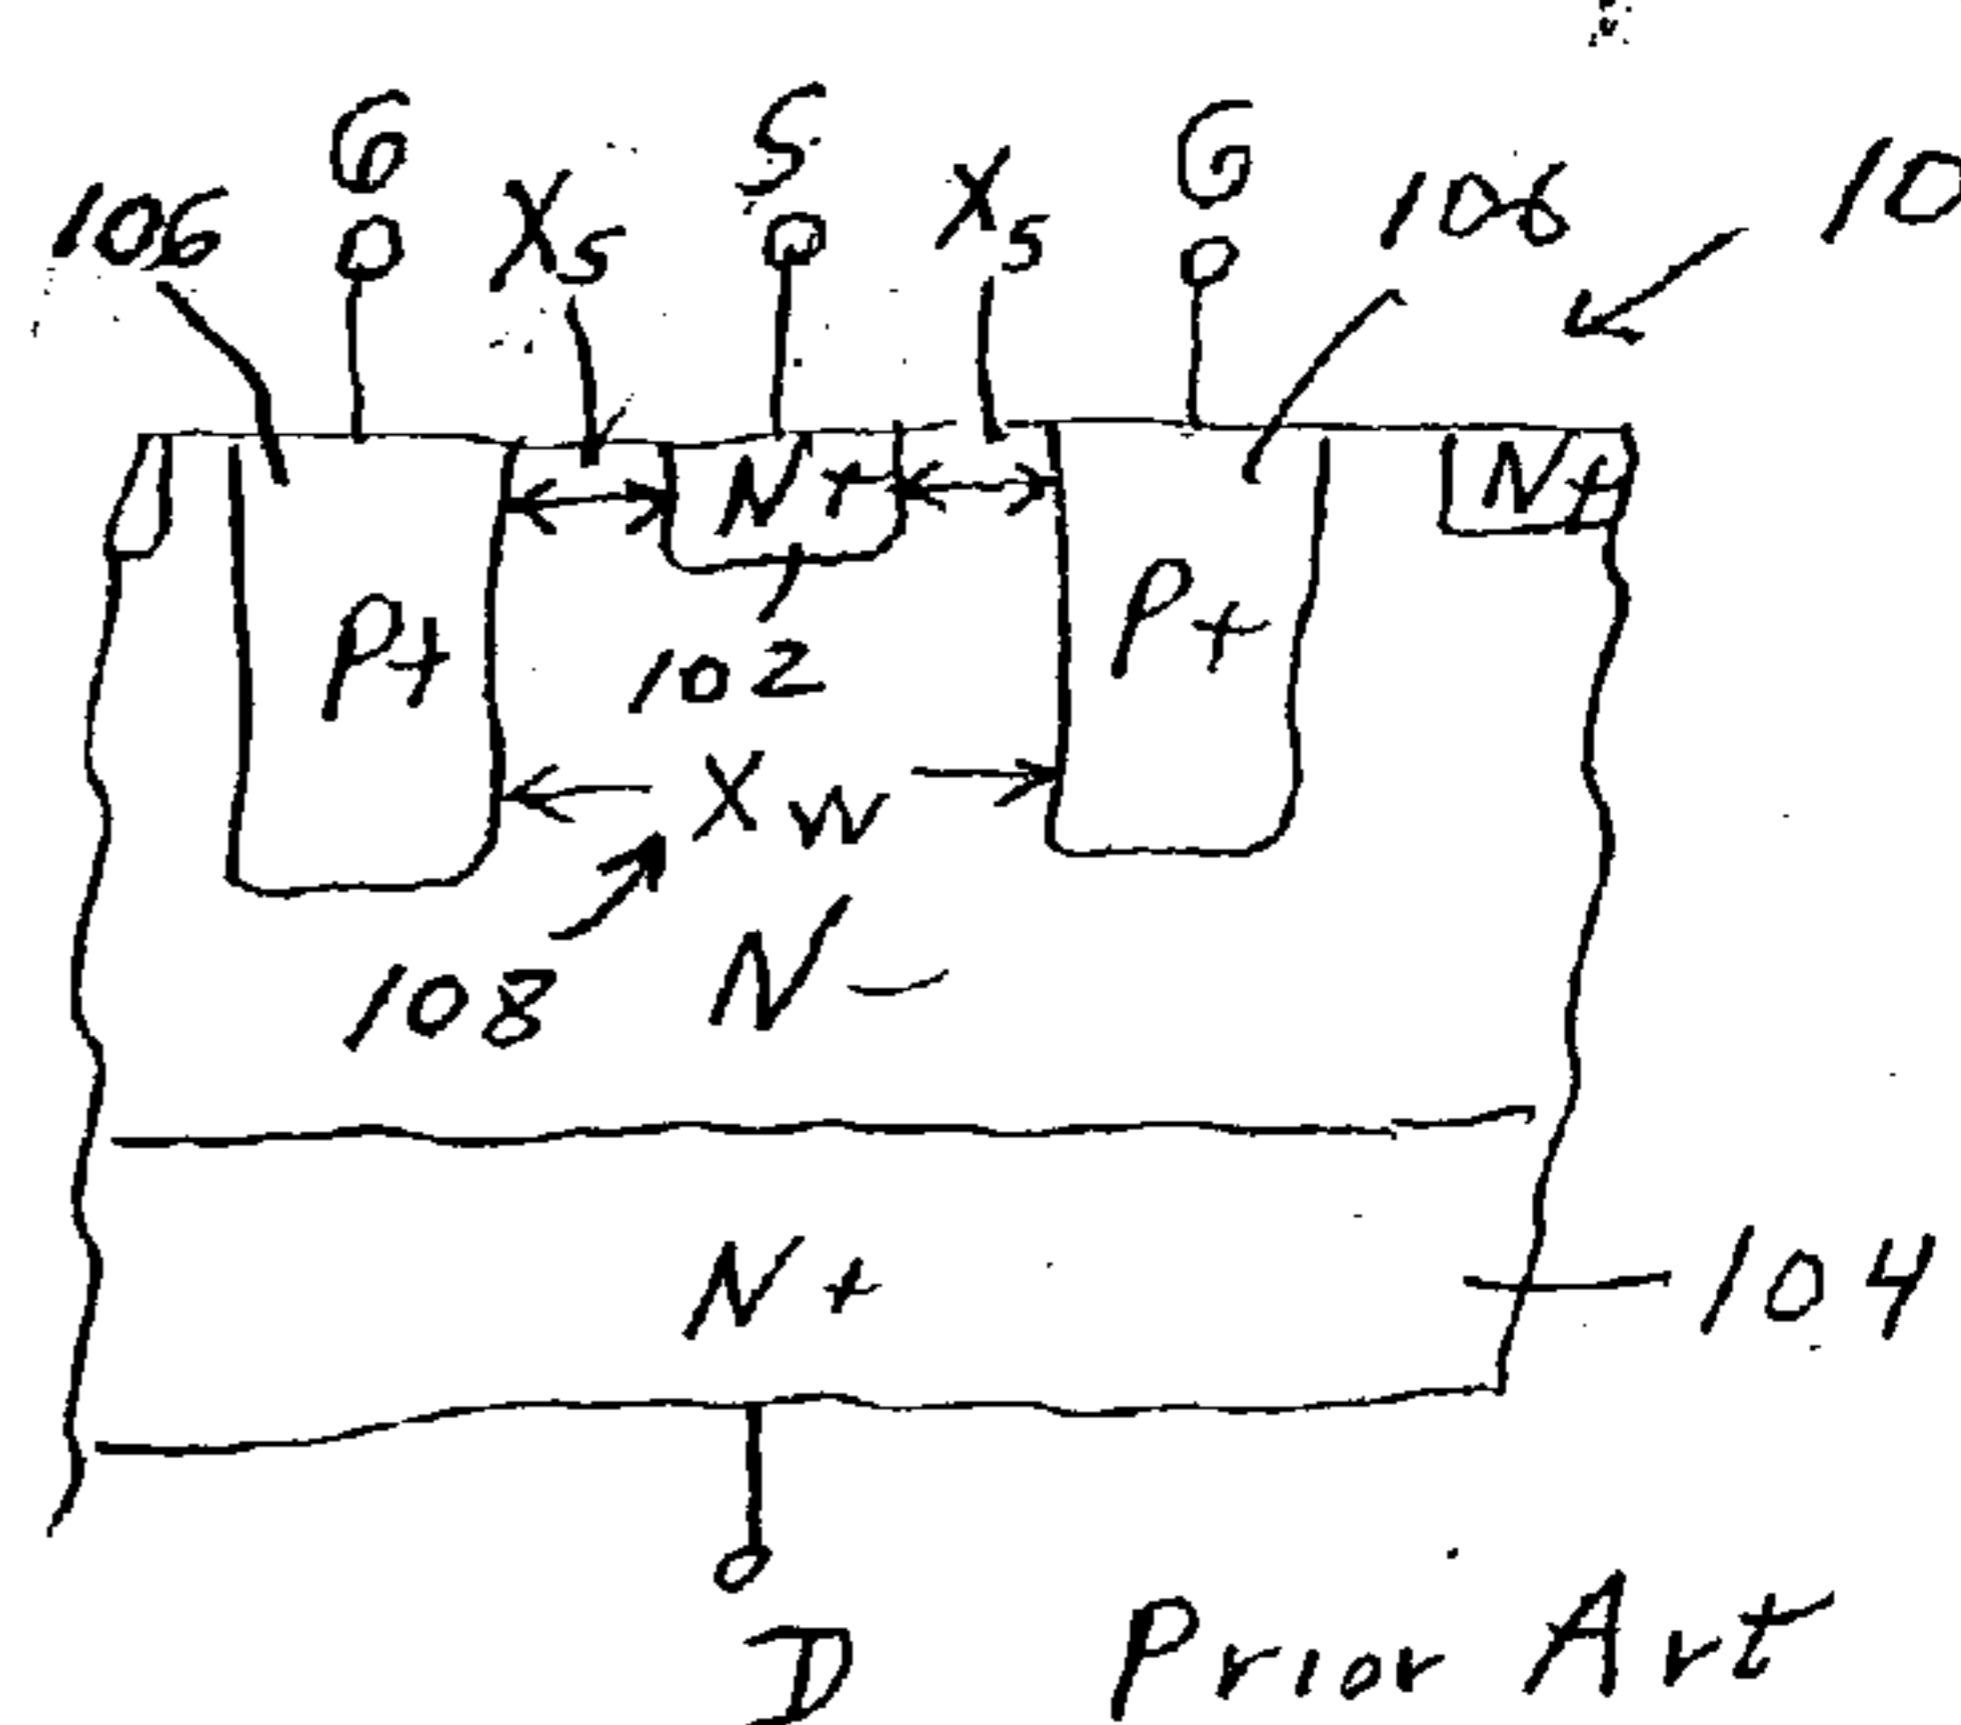 G S G
106 Xs Xs 106 10
N+ N+
P+ P+
102
Xw
108 N-
N+ 104
D Prior Art